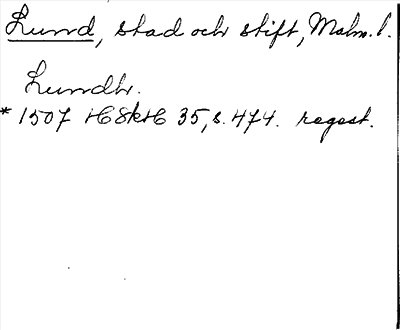 Lund, stad och stift, Malm. l.
Lundh.
* 1507 HSkH 35, s. 474. regest.